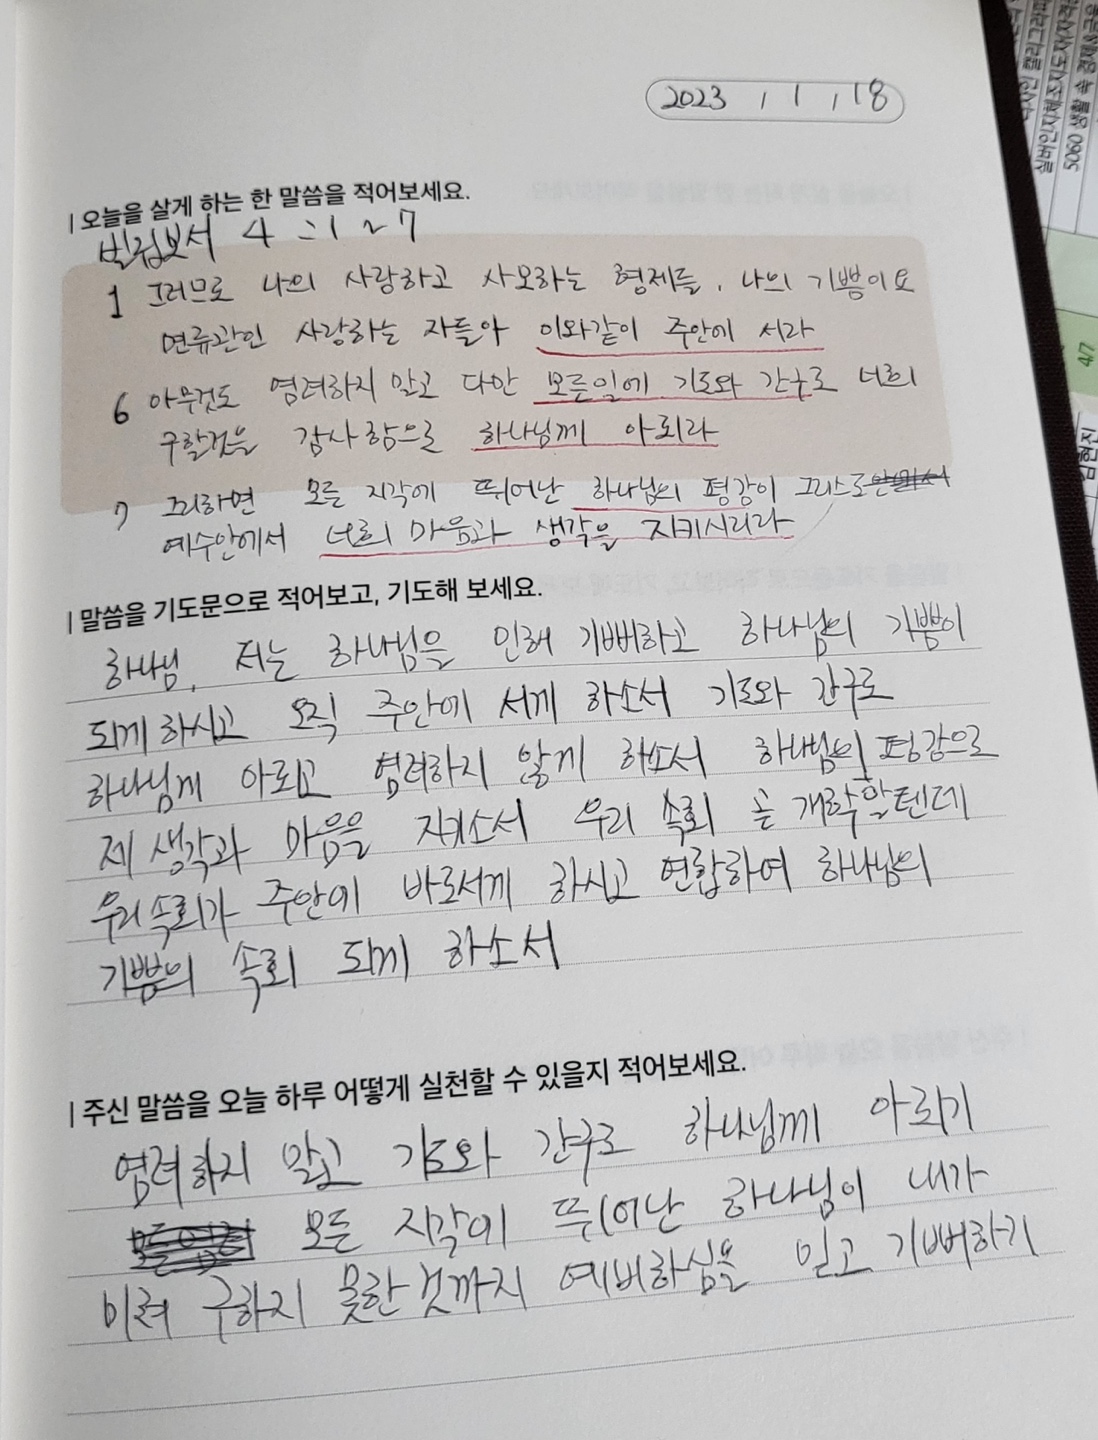 2023 , 1 , 18
오늘을 살게 하는 한 말씀을 적어보세요.
빌립보서 4 : 1 ~ 7
1 그러므로 나의 사랑하고 사모하는 형제들, 나의 기쁨이요
면류관인 사랑하는 자들아 이와같이 주안에 서라
6 아무것도 염려하지 말고 다만 모든일에 기도와 간구로 너희
구할것을 감사함으로 하나님께 아뢰라
7 그리하면 모든 지각에 뛰어난 하나님의 평강이 그리스도
예수안에서 너희 마음과 생각을 지키시리라
말씀을 기도문으로 적어보고, 기도해 보세요.
하나님, 저는 하나님을 인해 기뻐하고 하나님의 기쁨이
되게 하시고 오직 주안에 서게 하소서 기도와 간구로
하나님께 아뢰고 염려하지 않게 하소서 하나님의 평강으로
제 생각과 마음을 지키소서 우리 속회 곧 개학할텐데
우리속회가 주안에 바로서게 하시고 연합하여 하나님의
기쁨의 속회 되게 하소서
주신 말씀을 오늘 하루 어떻게 실천할 수 있을지 적어보세요.
염려하지 말고 기도와 간구로 하나님께 아뢰기
모든 지각이 뛰어난 하나님이 내가
미쳐 구하지 못한것까지 예비하심을 믿고 기뻐하기
0905 생활 속
4/7
김현진